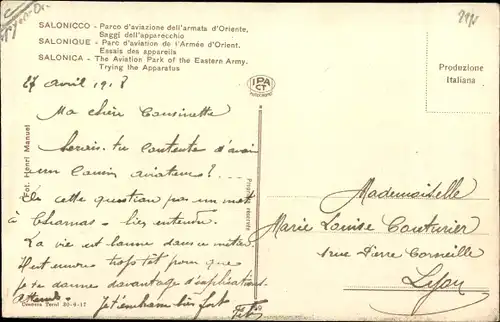 SALONICCO - Parco d'aviazione dell'armata d'Oriente,
Saggi dell'apparecchio
SALONIQUE - Parc d'aviation de l'Armée d'Orient.
Essais des appareils
SALONICA - The Aviation Park of the Eastern Army.
Trying the Apparatus
IPA
CT
Produzione
Italiana
27 avril 1918
Ma chère Cousinette
Serais-tu contente d'avoir
un cousin aviateur? ...
De cette question pas un mot
à Chamas - bien entendu.
La vie est bonne dans ce métier.
Il est encore trop tôt pour que
je te donne davantage d'explications.
Je t'embrasse bien fort
Fot. Henri Manuel
Proprietà riservata
Mademoiselle
Marie Louise Couturier
1 rue Pierre Corneille
Lyon
Censura Terni 20-6-17